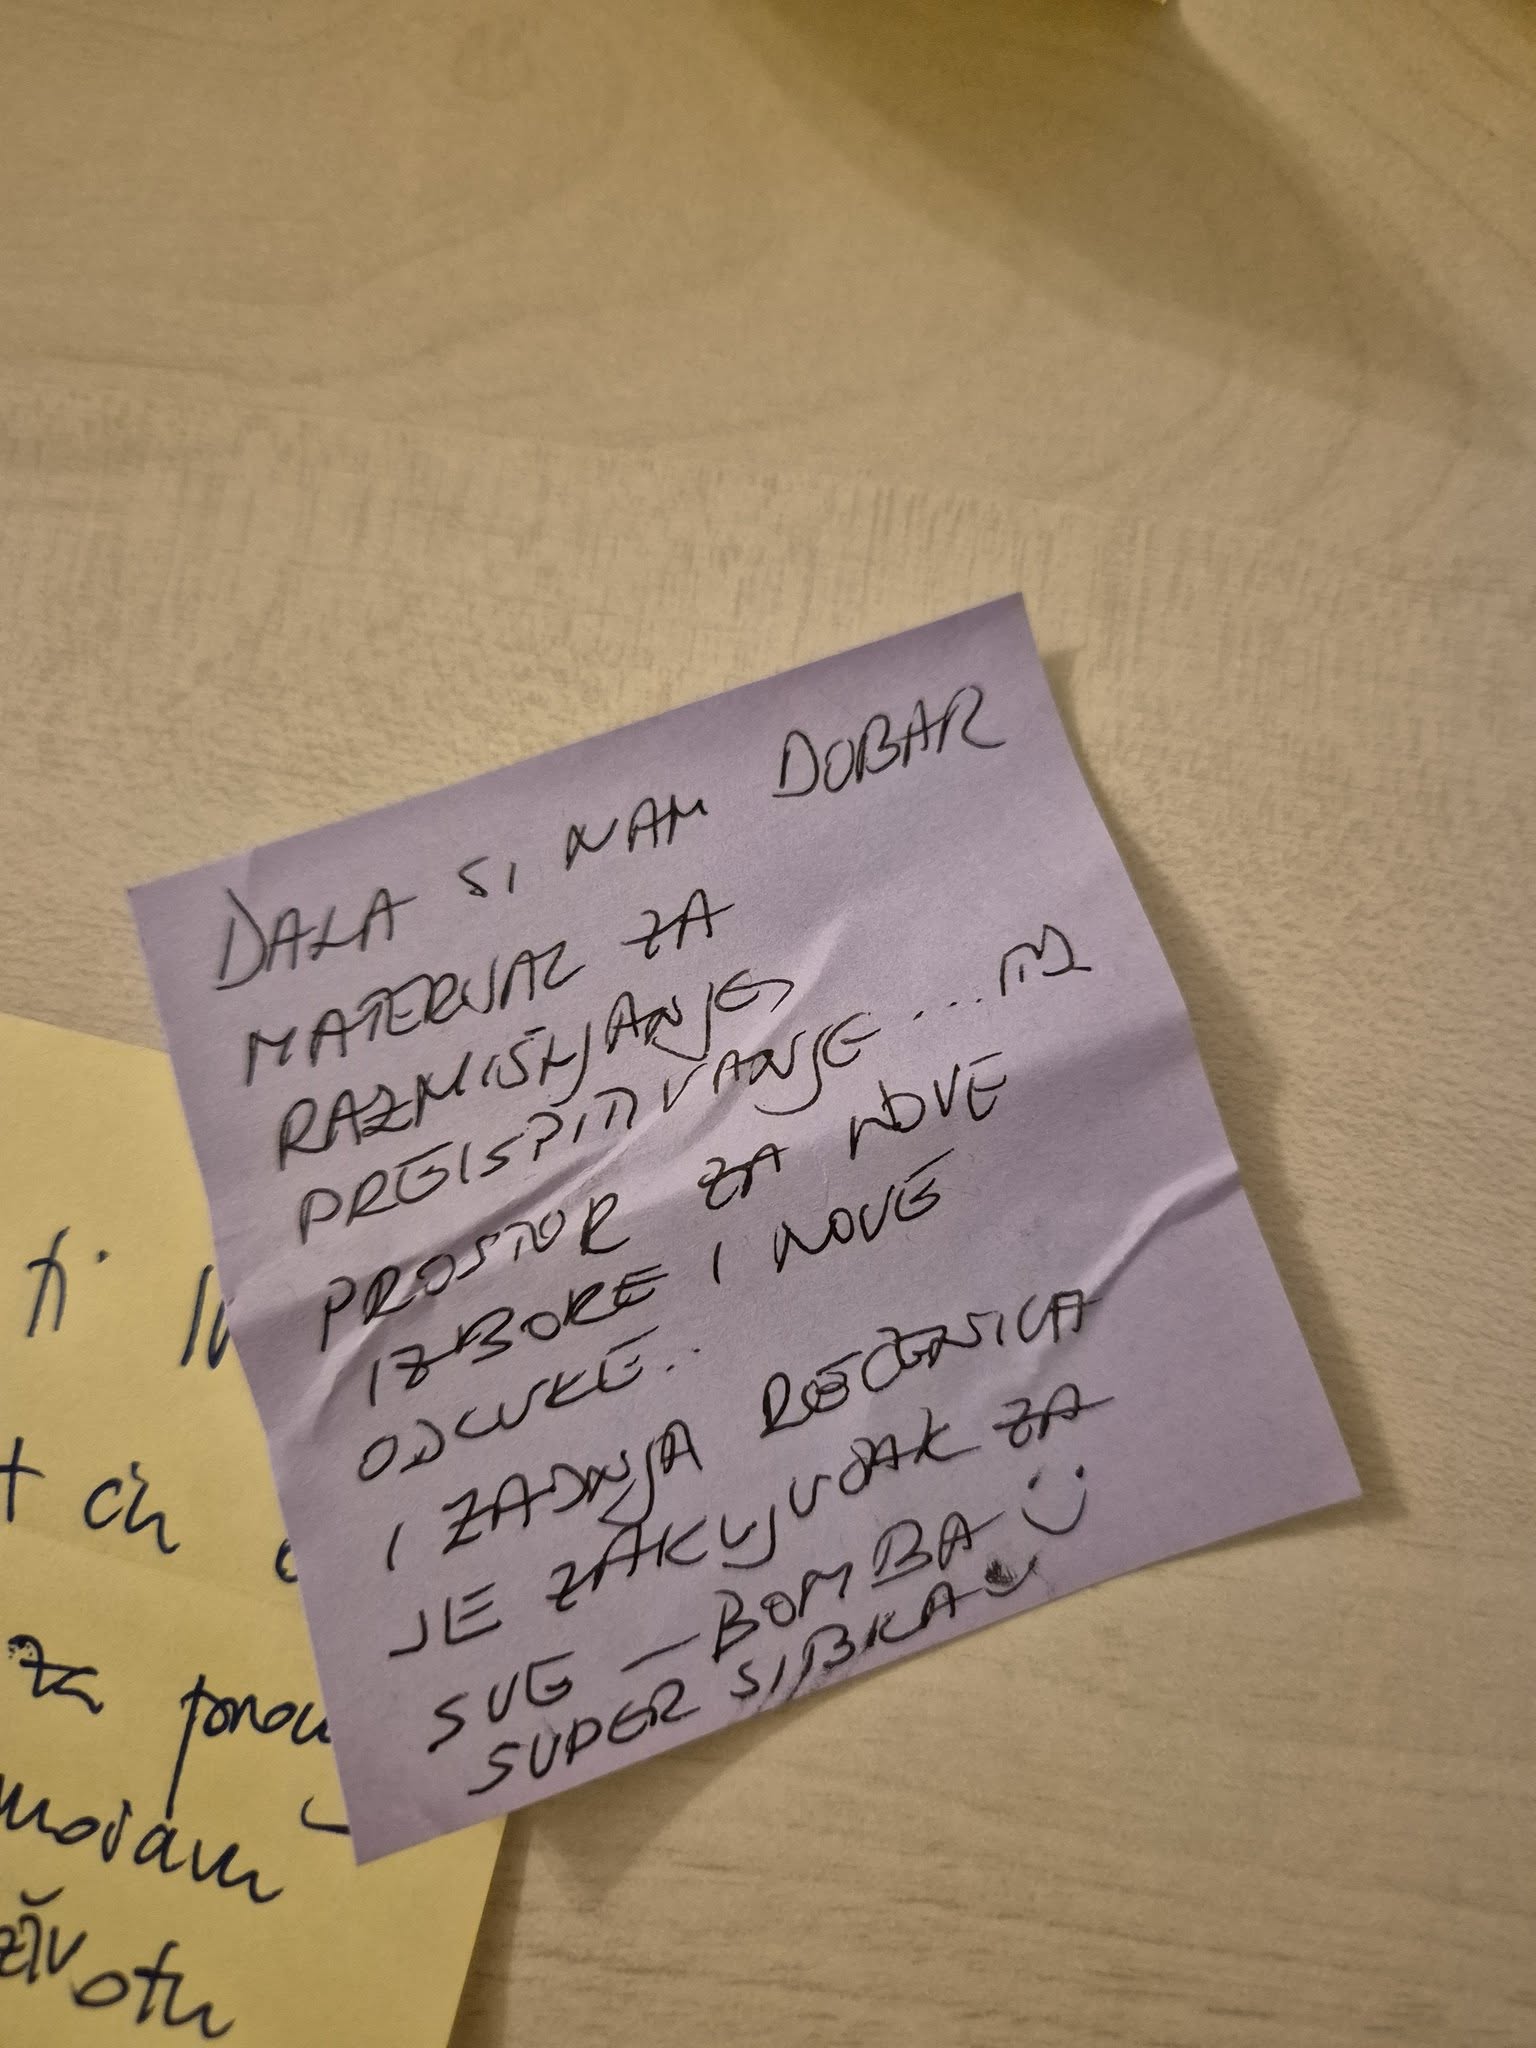 DALA SI NAM DOBAR
MATERIJAL ZA
RAZMIŠLJANJE,
PREISPITIVANJE...
PROSTOR ZA NOVE
IZBORE I NOVE
ODLUKE..
I ZADNJA REČENICA
JE ZAKLJUČAK ZA
SVE – BOMBA
SUPER SI
ti
za
životu